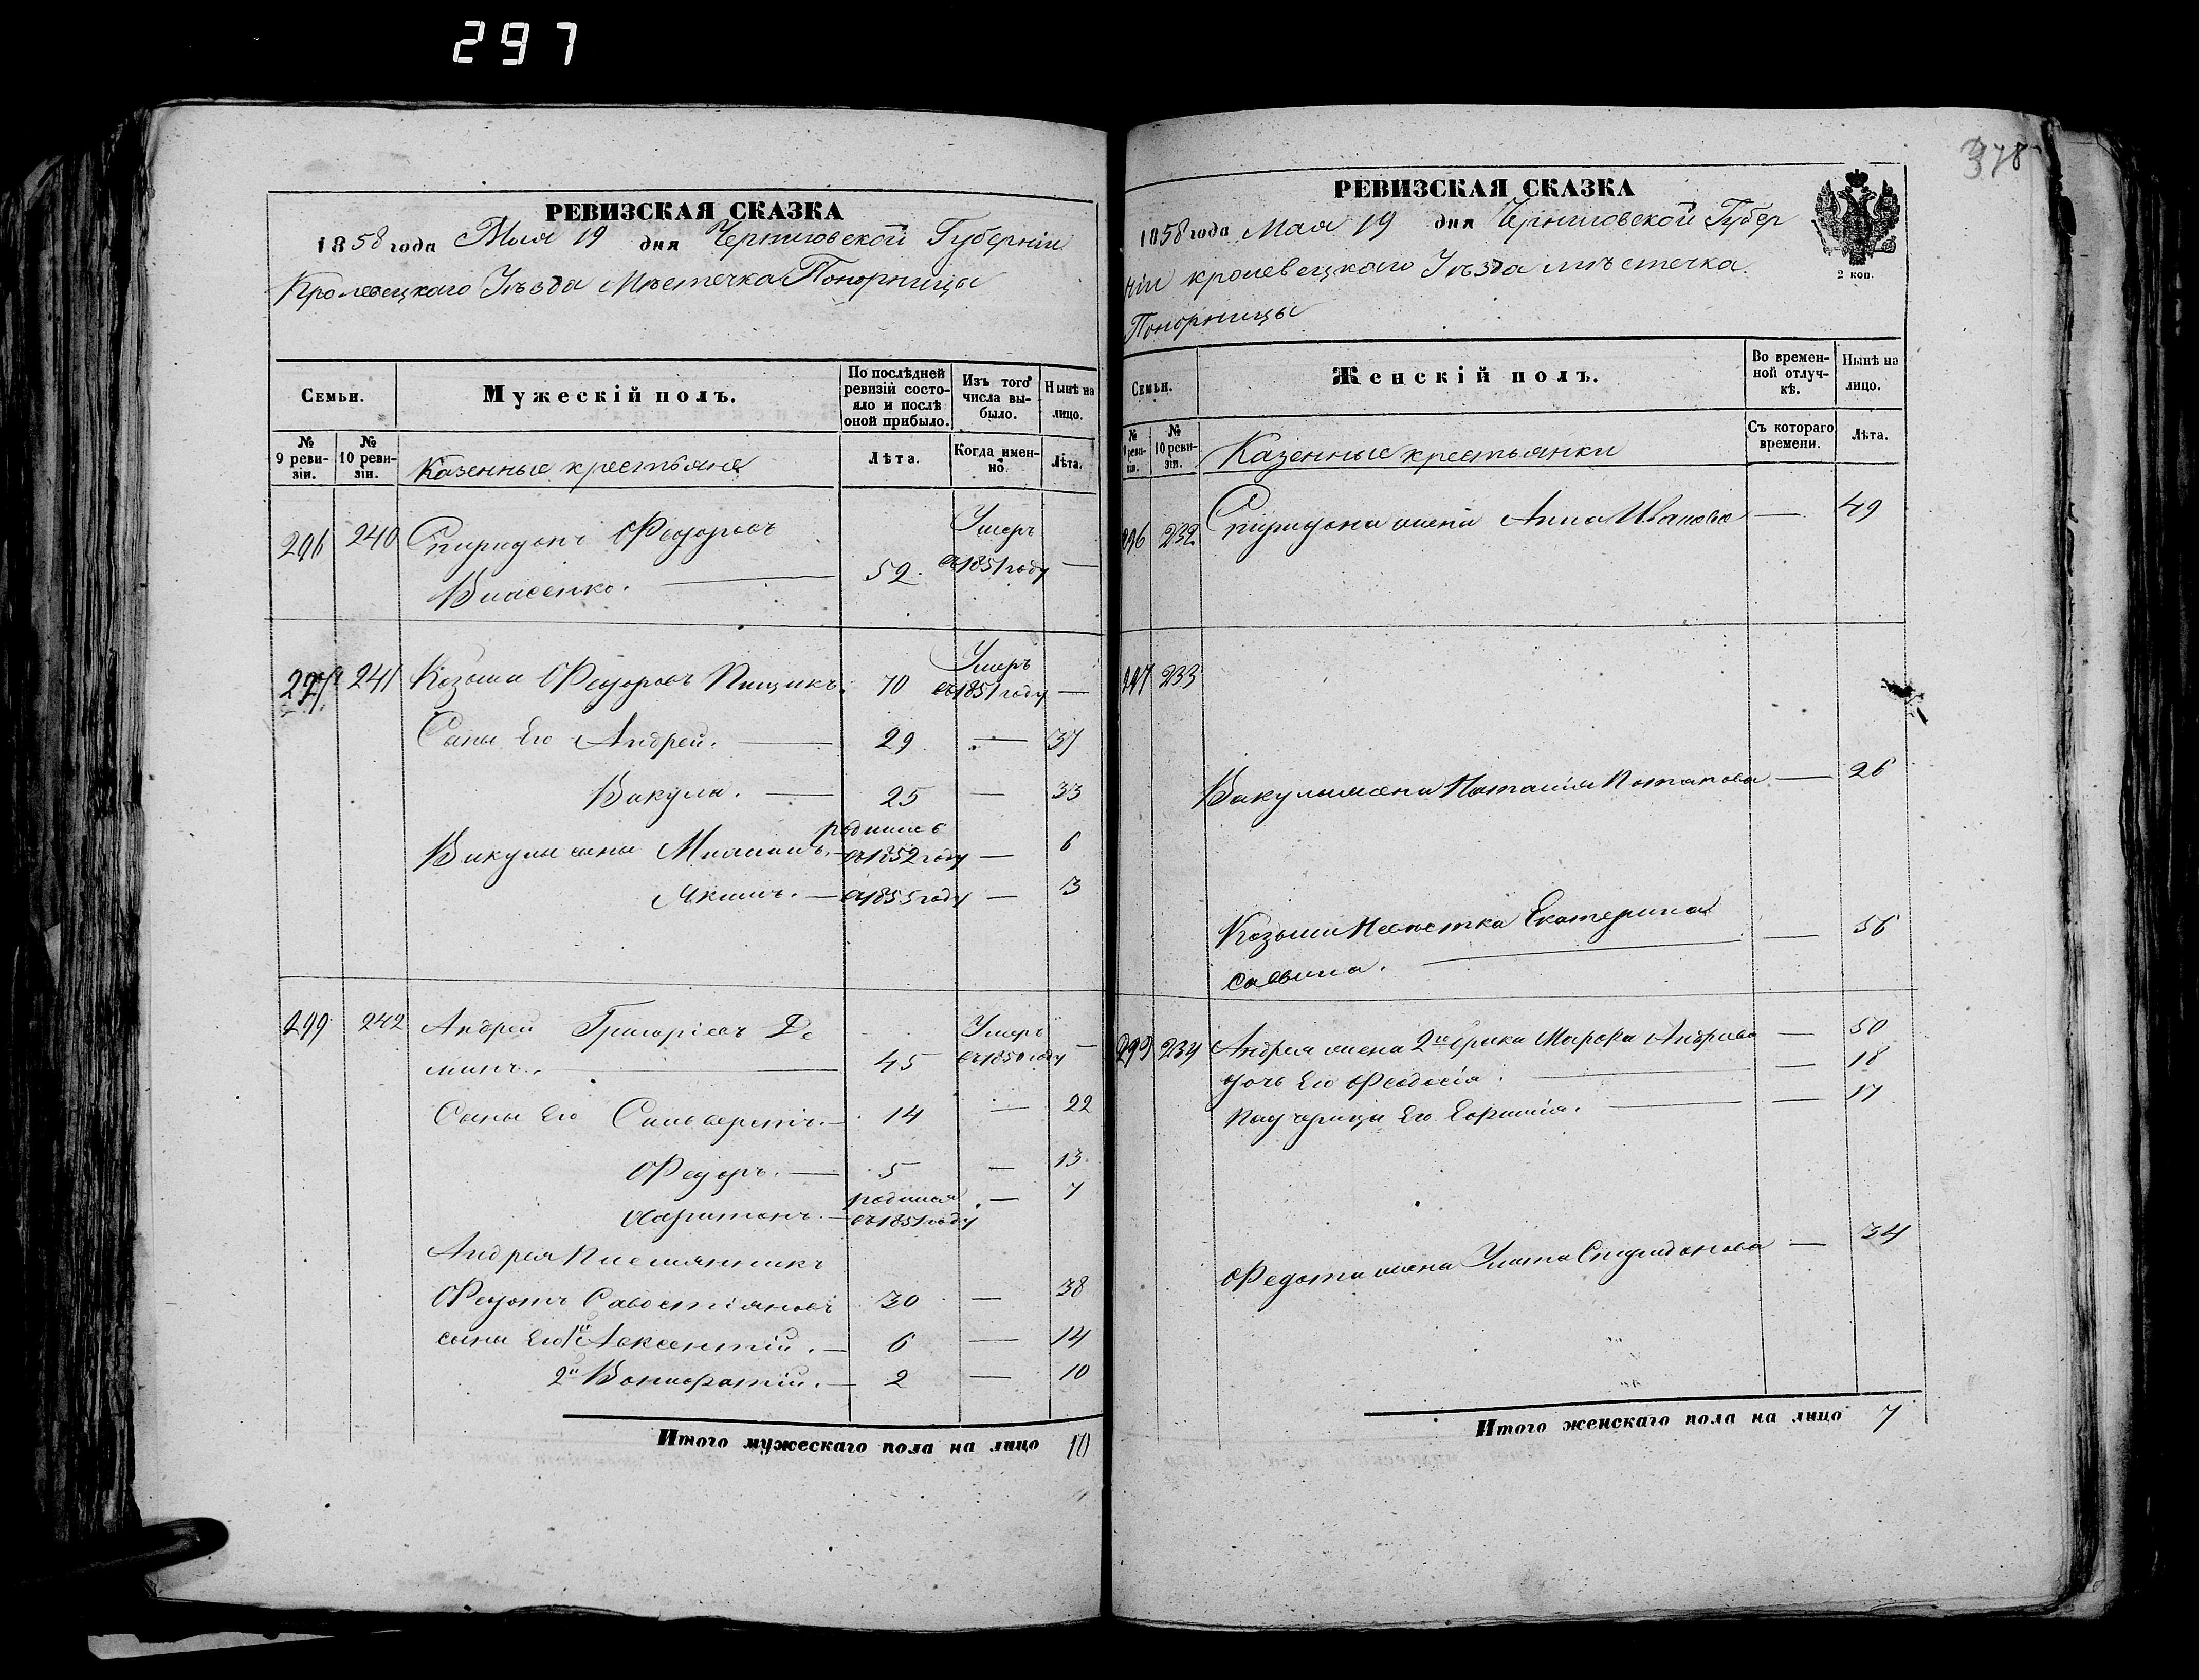 297
378
РЕВИЗСКАЯ СКАЗКА
1858 года Мая 19 дня Черниговской Губерніи
Кролевецкаго Уѣзда Мѣстечка Понорницы
Семьи.
Мужескій полъ.
По послѣдней ревизій состояло и послѣ оной прибыло.
Изъ того числа выбыло.
Нынѣ на лицо.
№ 9 ревизіи.
№ 10 ревизіи.
Казенные крестьяне
Лѣта.
Когда именно.
Лѣта.
296 240 Спиридонъ Федоровъ Умеръ
Власенко. — 52. въ 1851 году —
297 241 Козьма Федоровъ Пищикъ. 70 Умеръ въ 1851 году —
Сыны Его Андрей. — 29. — 37
Вакула. — 25 — 33
Вакулы сыны родился
въ 1852 году — 6
Якимъ. — въ 1855 году — 3
299 242 Андрей Григорьевъ Де Умеръ
минъ. — 45 въ 1850 году —
Сыны Его Сильверстъ. — 14 — 22
Федоръ. — 5 — 13
родился — 7
Харитонъ. — въ 1851 году
Андрея Племянникъ
Федотъ Савостіяновъ 30 — 38
сыны Его 1й Авксентій. — 6 — 14
2й Вонифатій. — 2 — 10
Итого мужескаго пола на лицо 10
РЕВИЗСКАЯ СКАЗКА
1858 года Мая 19 дня Черниговской Губер
ніи кролевецкаго Уѣзда мѣстечка
Понорницы
2 коп.
Семьи.
Женскій полъ.
Во временной отлучкѣ.
Нынѣ на лицо.
№ 9 ревизіи.
№ 10 ревизіи.
Казенные крестьянки
Съ котораго времени.
Лѣта.
296 232 Спиридона жена Анна Иванова — 49
297 233
Вакулы жена Наталія Потапова — 26
Козьмы Невѣстка Екатерина — 56
Саввина.
299 234 Андрея жена 2го брака Марфа Андреева — 50
дочь Его Феодосія. — 18
Падчерица Его Евфимія. — 17
Федота жена Улита Спиридонова — 34
Итого женскаго пола на лицо 7